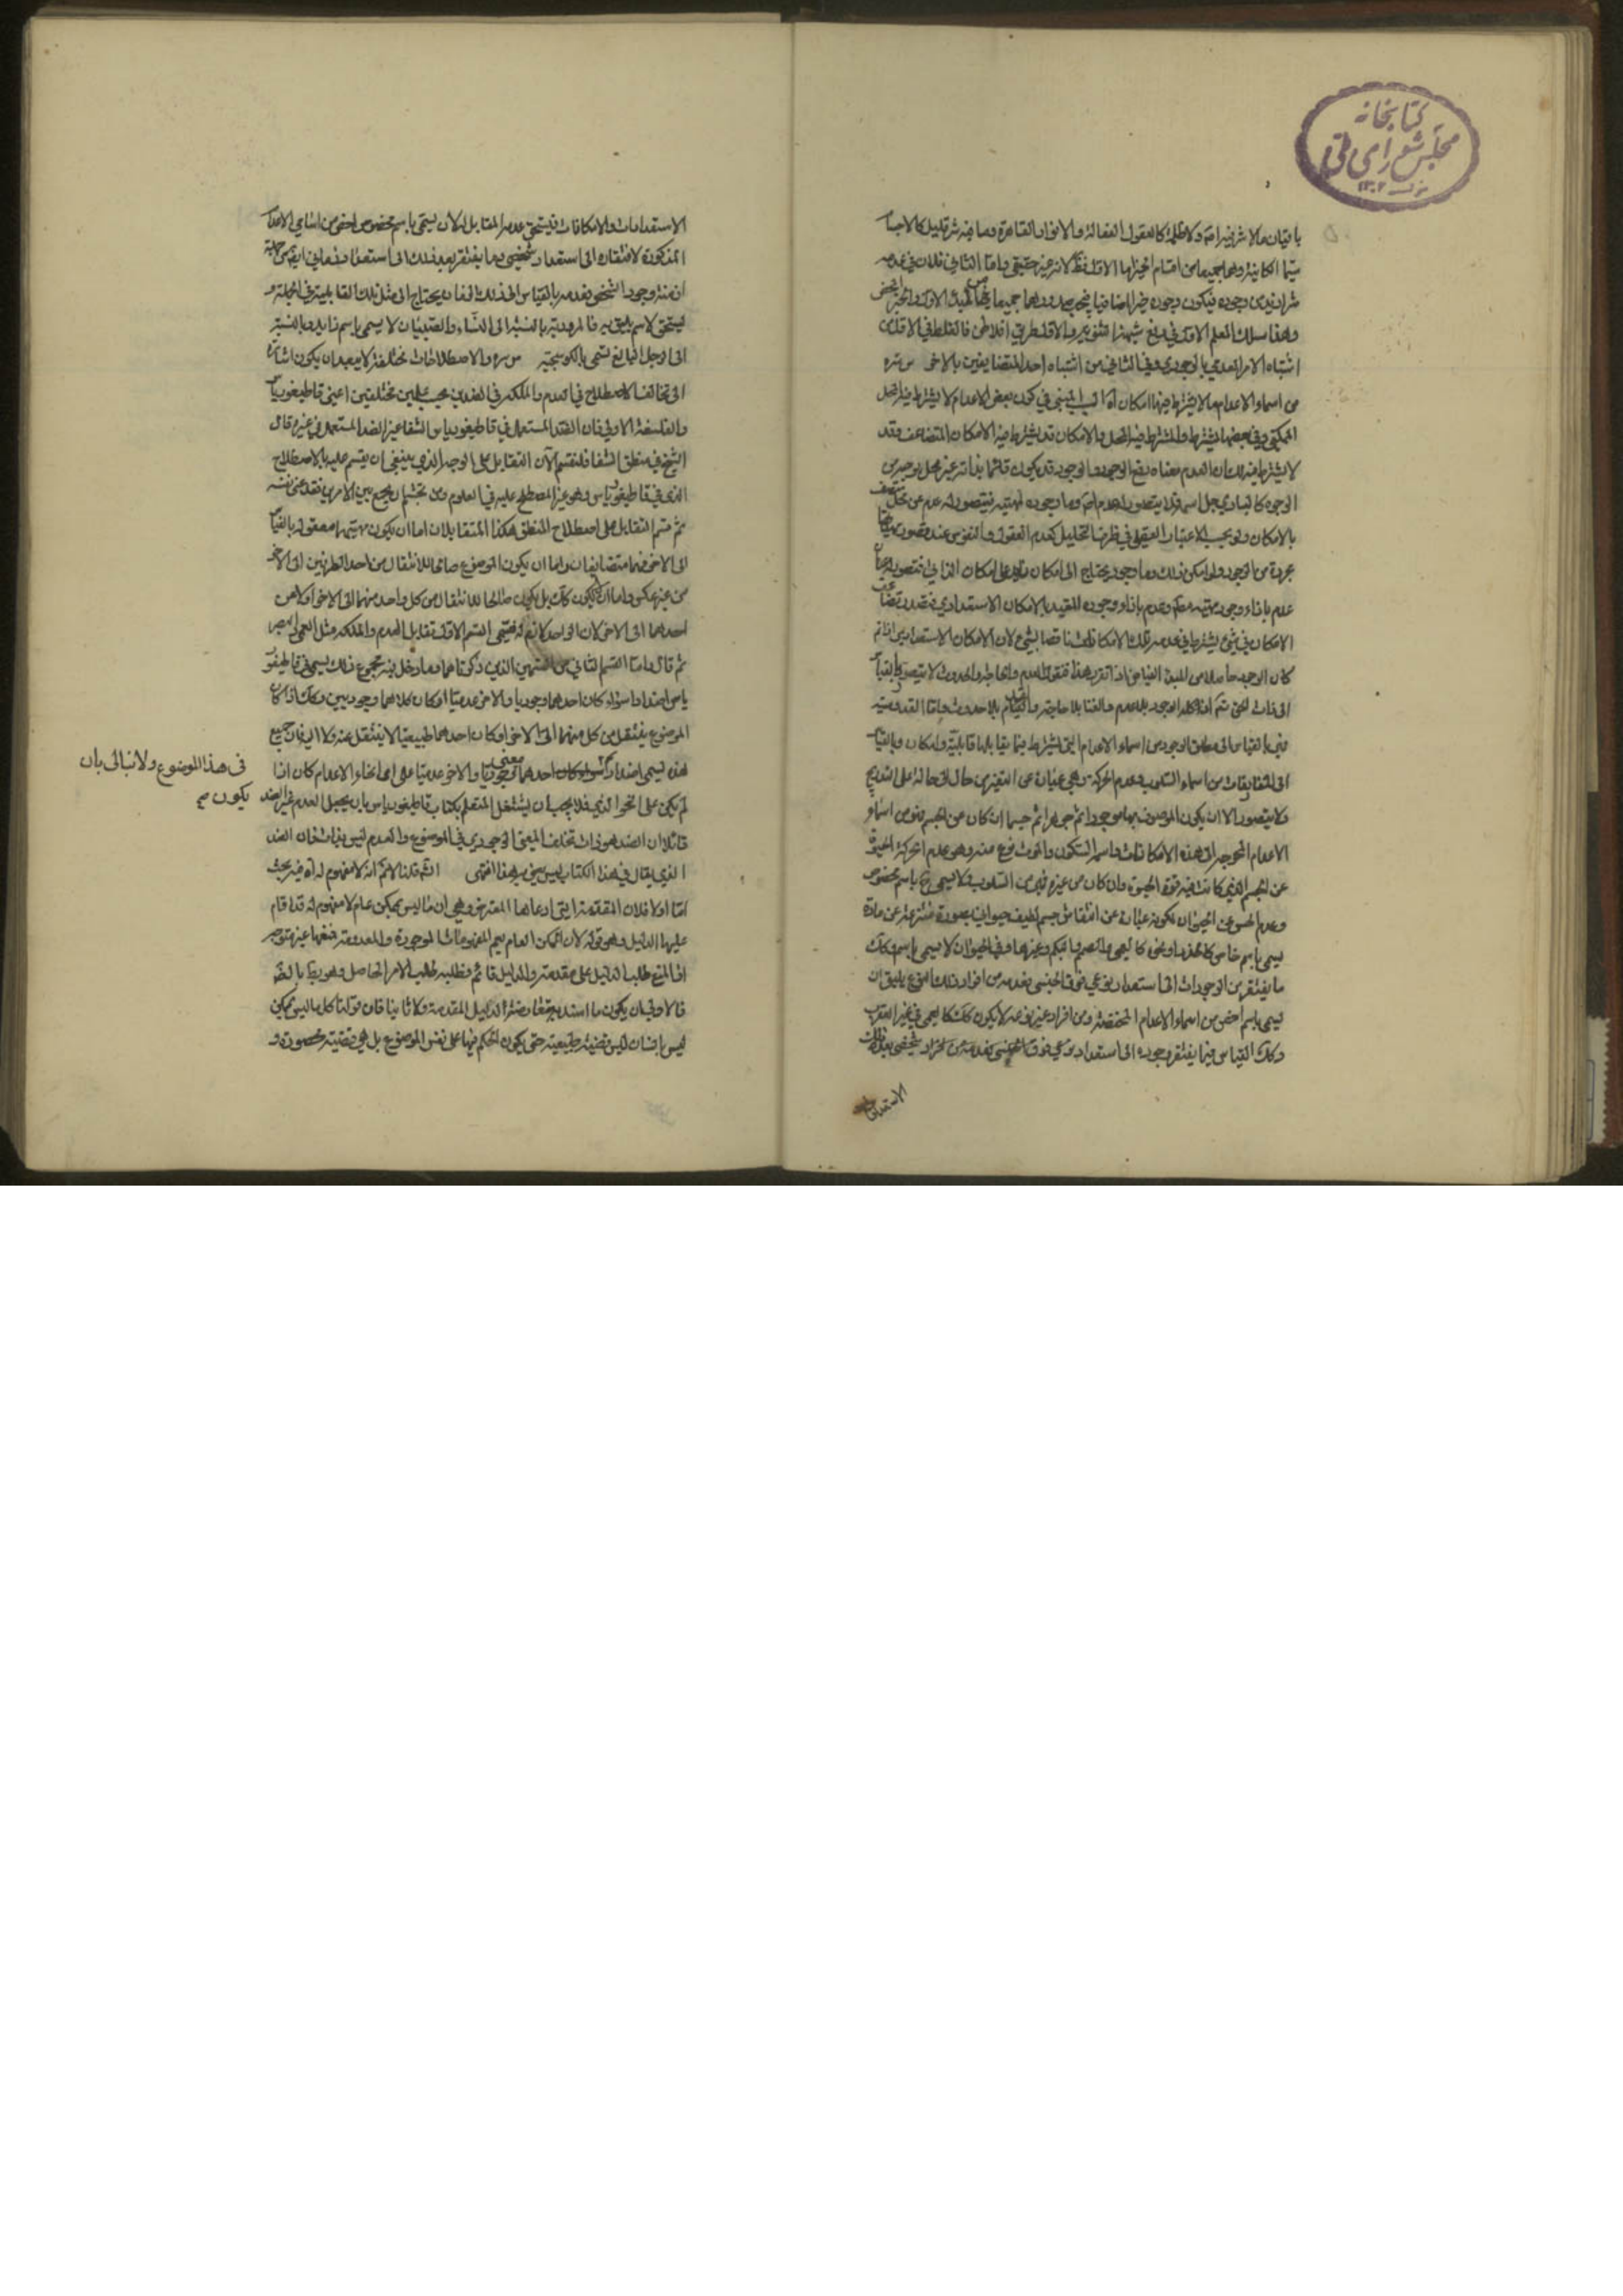 كتابخانه
مجلس شورای ملی
باقيان ما لا شر فيه اصلا ولا ظلمة كالعقول الفعالة والانوار القاهرة وما فيه شر قليل كالاجسام
سيما الكائنة وهما جميعا من اقسام الخير اما الاول فظ لانه خير حقيقي واما الثاني فلان في عدمه
شر ازيد من وجوده فيكون وجوده خيرا اضافيا فيجب صدورهما جميعا عن المبدء الاول والخير المحض
وهذا مسلك المعلم الاول في دفع شبهة الثنوية والاول طريق افلاطن فالغلط في الاول من
اشتباه الامر العدمي بالوجودي وفي الثاني من اشتباه احد المتضايفين بالاخر س ره
من اسماء الاعدام ما لا يشترط فيها امكان اه السبب في كون بعض الاعدام لا يشترط فيه المحل
الممكن وفي بعضها يشترط والمشترط فيه المحل والامكان قد يشترط فيه الامكان المتضاعف وقد
لا يشترط فيه ذلك ان العدم معناه رفع الوجود والوجود قد يكون قائما بذاته غير محل بوجه من
الوجوه كالباري جل اسمه فلا يتصور له عدم اصلا وما وجوده لمهيته فيتصور له عدم عن محل متصف
بالامكان ولو بحسب الاعتبار العقلي في ظرف التحليل كعدم العقول والنفوس عند تصور مهياتها
مجردة من الوجود ولو امكن ذلك وما وجوده يحتاج الى امكان زايد على امكان الذاتي فتصور له
عدم بازاء وجود مهيته وعدم بازاء وجوده المقيد بالامكان الاستعدادي فقد تضاعف
الامكان في شيء يشترط في عدمه تلك الامكانات
كان الوجود حاصلا من المبدء الفياض اذا تقرر هذا فنقول العدم والحاجة والحدوث لا يتصور بالقياس
الى ذات الحق تم اذ له كل الوجود بلا عدم والغنا بلا حاجة والقدم بلا حدوث واما القدوسية
فهي بالقياس الى مطلق الوجود من اسماء الاعدام التي يشترط فيما يقابلها قابلية وامكان وبالقياس
الى المفارقات من اسماء السلوب وعدم الحركة وهي عبارة عن التغير من حال الى حالة على التدريج
ولا يتصور الا ان يكون الموصوف بها موجودا ثم جوهرا ثم جسما ان كان من الجسم فهو من اسماء
الاعدام المحوجة الى هذه الامكانات واسمه السكون والموت نوع منه وهو عدم الحركة الحيوة
عن الجسم الذي كانت فيه قوة الحيوة وان كان من غيره فهو من السلوب ولا يسمى باسم مخصوص
وعدم الحس عن الحيوان لكونه عبارة عن انتقاش جسم لطيف حيواني بصورة منتزعة عن مادة
يسمى باسم خاص كالخدر ونحوه كالعمى والصمم والبكم وغيرها وفي غير الحيوان لا يسمى باسم وكذلك
ما يفتقر من الوجودات الى استعداد نوعي فوق الجنسي فعدمه من افراد ذلك النوع يليق ان
يسمى باسم اخص من اسماء الاعدام المختصة ومن افراد غير نوعه لا يكون كذلك كالعمى في غير العقرب
وكذلك القياس فيما يفتقر وجوده الى استعداد نوعي فوق الجنسي فعدمه من افراد شخصي بعد تلك
الاستعدادات
الاستعدادات والامكانات فيستحق عدمه المقابل له لان يسمى باسم مخصوص اخص من اسامي الاعدام
المذكورة لافتقاره الى استعداد شخصي وما يفتقر بعد ذلك الى استعداد زماني ايضا من جملة
ازمنة وجود الشخص فعدمه بالقياس الى ذلك الزمان يحتاج الى مثل تلك القابلية في الجملة و
ليستحق لاسم يليق به فالمرودية بالنسبة الى النساء والصبيان لا يسمى باسم زايد وبالنسبة
الى الرجل البالغ تسمى بالكوسجية س ره والاصطلاحات مختلفة لا يبعد ان يكون اشارة
الى تخالف الاصطلاح في العدم والملكة وفي الضدين بحسب علمين مختلفين اعني قاطيغورياس
والفلسفة الاولى فان الضد المستعمل في قاطيغورياس الشفا غير الضد المستعمل في غيره قال
الشيخ في منطق الشفا فلنقسم الآن التقابل على الوجه الذي ينبغي ان يقسم عليه بالاصطلاح
الذي في قاطيغورياس وهو غير المصطلح عليه في العلوم ومن تجشم ان يجمع بين الامرين فقد عنى نفسه
ثم قسم التقابل على اصطلاح المنطق هكذا المتقابلان اما ان يكون مهيتهما معقولة بالقياس
الى الاخر فهما متضايفان واما ان يكون الموضوع صالحا للانتقال من احد الطرفين الى الاخر
من غير عكس واما ان لا يكون كذلك بل يكون صالحا للانتقال من كل واحد منهما الى الاخر او لا من
احدهما الى الاخر لان الواحد لازم له فيسمى القسم الاول تقابل العدم والملكة مثل العمى والبصر
ثم قال واما القسم الثاني من القسمين الذين ذكرناهما وما دخل فيه مجموع ذلك يسمى في قاطيغور
ياس اضدادا سواء كان احدهما وجوديا والاخر عدميا او كان كلاهما وجوديين وكذلك اذا كان
الموضوع ينتقل من كل منهما الى الاخر او كان احدهما طبيعيا لا ينتقل عنه ولا اليه فان جميع
هذه يسمى اضدادا سواء كان احدهما معنى وجوديا والاخر عدميا على اي انحاء الاعدام كان اذا
لم يكن على النحو الذي فلا يجب ان يشتغل المتعلم بكتاب قاطيغورياس بان يجعل العدم غير الضد
قائلا ان الضد هو ذات تخلف المعنى الوجودي في الموضوع والعدم ليس بذات فان الضد
الذي يقال في هذا الكتاب ليس يعني به هذا انتهى قلنا لا نم انه لا مفهوم له اه فيه بحث
اما اولا فلان المقدمة التي ادعاها المعترض وهي ان ما ليس بممكن عام لا مفهوم له قد اقام
عليها الدليل وهو قوله لان الممكن العام يعم المفهومات الموجودة والمعدومة فمنعها غير متوجه
اذ المنع طلب الدليل على مقدمة والدليل قائم فطلبه طلب الامر الحاصل وهو بط بالضرورة
فالاولى ان يكون ما اسنده معارضة الدليل المقدمة ولا ثانيا فان قولنا كل ما ليس بممكن
ليس بانسان ليس قضية طبيعية حتى يكون الحكم فيها على نفس الموضوع بل هي قضية محصورة و
فى هذا الموضوع ولا نبالى بان
يكون صح